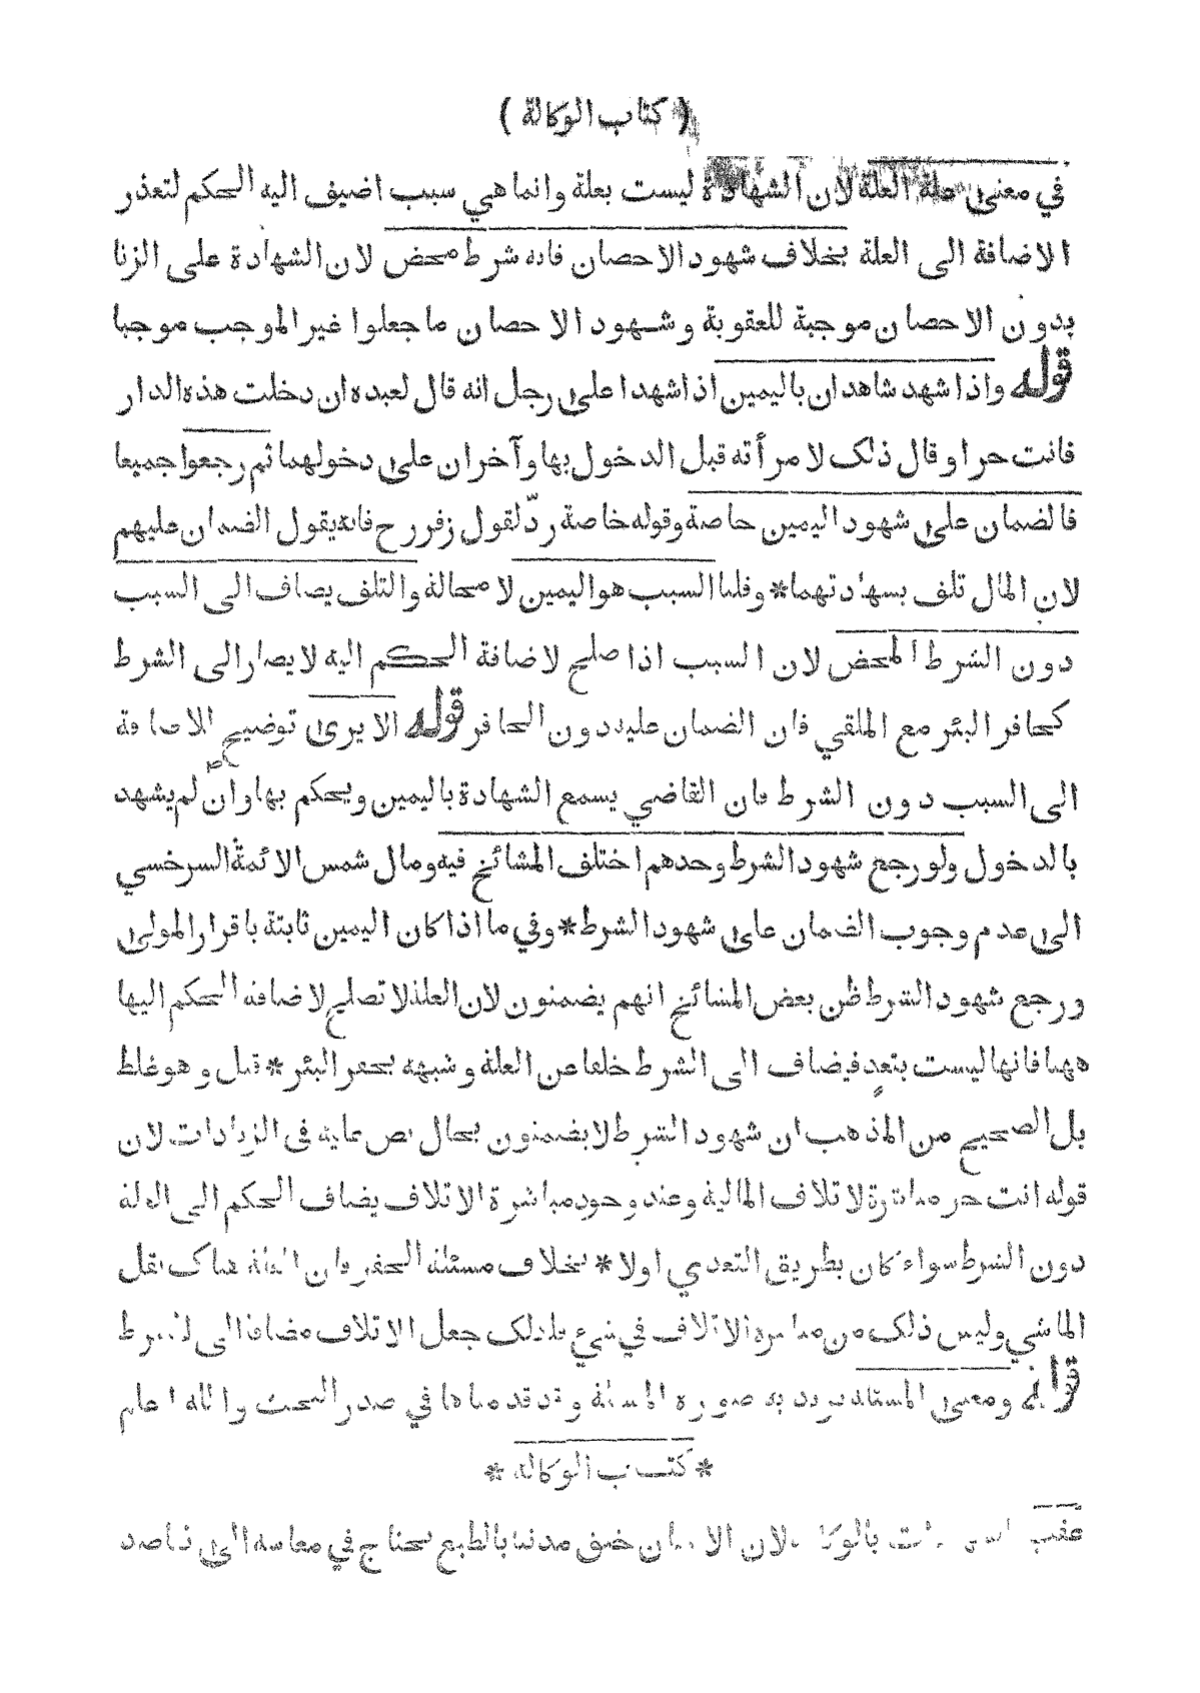 ( كتاب الوكالة )
في معنى علة العلة لان الشهادة ليست بعلة وانما هي سبب اضيف اليه الحكم لتعذر
الاضافة الى العلة بخلاف شهود الاحصان فانه شرط محض لان الشهادة على الزنا
بدون الاحصان موجبة للعقوبة وشهود الاحصان ما جعلوا غير الموجب موجبا
قوله واذا شهد شاهدان باليمين اذا شهدا على رجل انه قال لعبده ان دخلت هذه الدار
فانت حر او قال ذلك لامرأته قبل الدخول بها وآخران على دخولهما ثم رجعوا جميعا
فالضمان على شهود اليمين خاصة وقوله خاصة ردّ لقول زفر رح فانه يقول الضمان عليهم
لان المال تلف بشهادتهما * وقلنا السبب هو اليمين لا محالة والتلف يضاف الى السبب
دون الشرط المحض لان السبب اذا صلح لاضافة الحكم اليه لا يصار الى الشرط
كحافر البئر مع الملقي فان الضمان عليه دون الحافر قوله الا يرى توضيح للاضافة
الى السبب دون الشرط فان القاضي يسمع الشهادة باليمين ويحكم بها وان لم يشهد
بالدخول ولو رجع شهود الشرط وحدهم اختلف المشائخ فيه ومال شمس الائمة السرخسي
الى عدم وجوب الضمان على شهود الشرط * وفي ما اذا كان اليمين ثابتة باقرار المولى
ورجع شهود الشرط ظن بعض المشائخ انهم يضمنون لان العلة لا تصلح لاضافة الحكم اليها
ههنا فانها ليست بتعد فيضاف الى الشرط خلفا عن العلة وشبهه بحفر البئر * قيل وهو غلط
بل الصحيح من المذهب ان شهود الشرط لا يضمنون بحال نص عليه في الزيادات لان
قوله انت حر مباشرة لاتلاف المالية وعند وجود مباشرة الاتلاف يضاف الحكم الى العلة
دون الشرط سواء كان بطريق التعدي اولا * بخلاف مسئلة الحفر فان العلة هناك ثقل
الماشي وليس ذلك من مباشرة الاتلاف في شيء فلذلك جعل الاتلاف مضافا الى الشرط
قوله ومعنى المسئلة يريد به صورة المسئلة وقد قدمناها في صدر البحث والله اعلم
* كتاب الوكالة *
عقب بالوكالة لان الانسان خلق مدنيا بالطبع يحتاج في معاشه الى